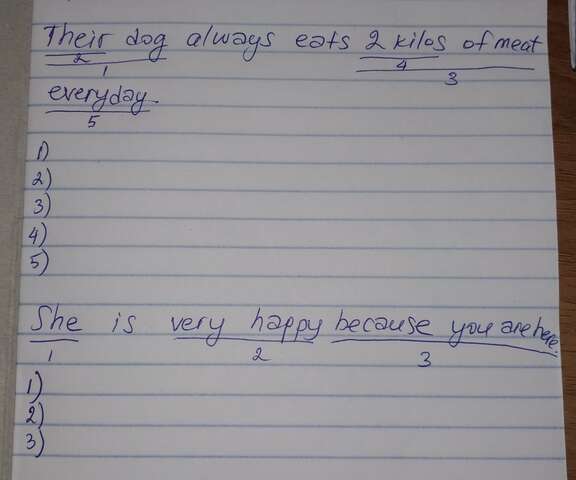 Their dog always eats 2 kilos of meat
2 1 4 3
everyday.
5
1)
2)
3)
4)
5)
She is very happy because you are here.
1 2 3
1)
2)
3)